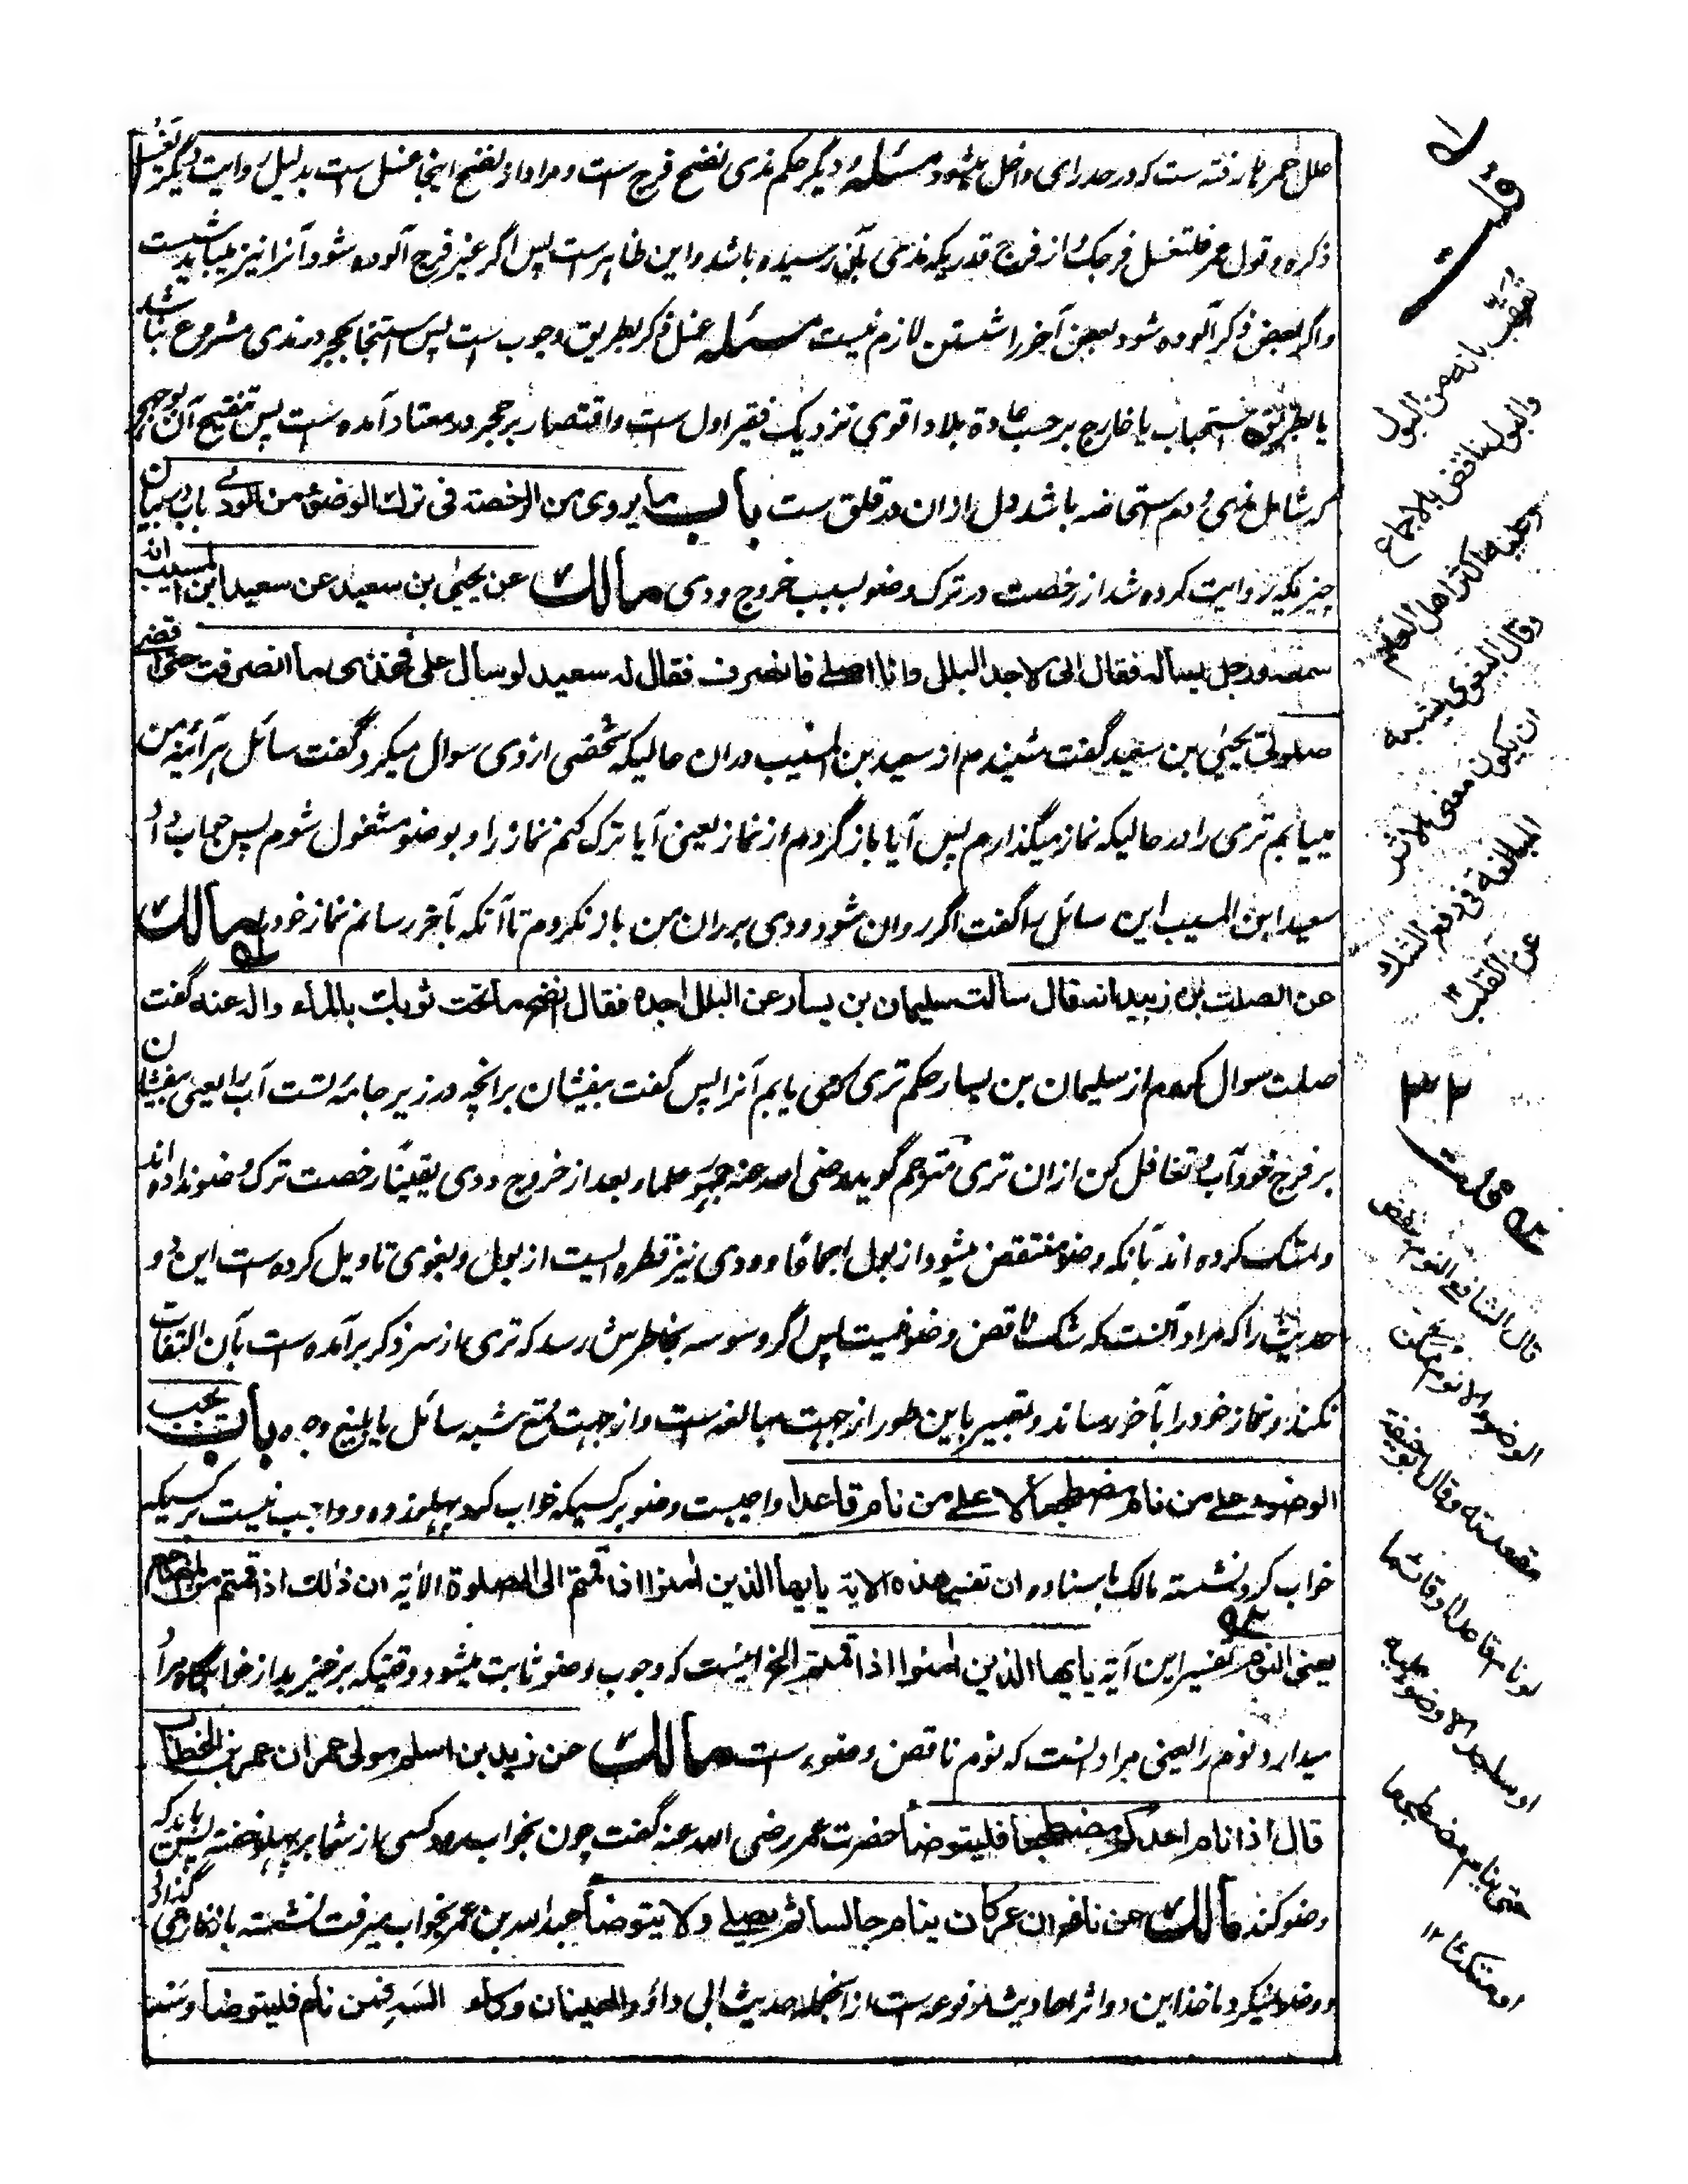 علل حمر کا رفته ست که در حد رای داخل میشود مسئله و دیگر حکم مذی نضح فرج است و مراد از نضح اینجا غسل است بدلیل روایت دیگر تغسل
ذکره و قول عمر فلتغسل فرجک از فرج قدریکه مذی بآن رسیده باشد و این ظاهر است پس اگر غیر فرج آلوده شود آنرا نیز میباید شست
و اگر بعض ذکر آلوده شود بعض آخر را شستن لازم نیست مسئله غسل ذکر بطریق وجوب است پس استنجا بحجر در مذی مشروع نباشد
یا بطریق استحباب یا خارج بر حسب عادة بلاد اقوی نزدیک فقیر اول ست و اقتصار بر حجر در معتاد آمده ست پس تنقیح آن بوجهی
که شامل مذی و دم استحاضه باشد دل ازان در قلق ست باب ما یروی من الرخصة فی ترک الوضوء من الودی باب در بیان
چیزیکه روایت کرده شد از رخصت در ترک وضو بسبب خروج ودی مالک عن یحیی بن سعید عن سعید ابن المسیب انه
سمعه ورجل یساله فقال انی لاجد البلل وانا اصلی فانصرف فقال له سعید لو سال علی فخذی ما انصرفت حتی اقضی
صلوتی یحیی بن سعید گفت شنیدم از سعید بن المسیب دران حالیکه شخصی از وی سوال میکرد گفت سائل هرآئینه من
مییابم تری را در حالیکه نماز میگذارم پس آیا باز گردم از نماز یعنی آیا ترک کنم نماز را و بوضو مشغول شوم پس جواب داد
سعید ابن المسیب این سائل را گفت اگر روان شود ودی بر ران من باز نگردم تا آنکه بآخر رسانم نماز خود را مالک
عن الصلت بن زیید انه قال سالت سلیمان بن یسار عن البلل اجده فقال انضح ما تحت ثوبک بالماء واله عنه گفت
صلت سوال کردم از سلیمان بن یسار حکم تری که می یابم آنرا پس گفت بیفشان برآنچه در زیر جامهٔ تست آب را یعنی بیفشان
بر فرج خود آب و تغافل کن ازان تری مترجم گوید رضی الله عنه جمهور علماء بعد از خروج ودی یقینًا رخصت ترک وضو نداده اند
و تمسک کرده اند بآنکه وضو منتقض میشود از بول اجماعًا و ودی نیز قطره ایست از بول و بغوی تاویل کرده ست این دو
حدیث را که مراد آنست که شک ناقض وضو نیست پس اگر وسوسه بخاطرش رسد که تری از سر ذکر برآمده ست بآن التفات
نکند و نماز خود را بآخر رساند و تعبیر باین طور از جهت مبالغه ست و از جهت منع شبه سائل بابلغ وجوه باب یجب
الوضوء علی من نام مضطجعا لا علی من نام قاعدا واجبست وضو بر کسیکه خواب کرد بپهلو زده و واجب نیست بر کسیکه
خواب کرد نشسته مالک باسناده ان تفسیر هذه الآیة یا یها الذین امنوا اذا قمتم الی الصلوة الآیة ان ذلک اذا قمتم من المضاجع
یعنی النوم تفسیر این آیة یا یها الذین امنوا اذا قمتم الخ اینست که وجوب وضو ثابت میشود وقتیکه برخیزید از خوابگاه مراد
میدارد نوم را یعنی مراد اینست که نوم ناقض وضوء ست مالک عن زید بن اسلم مولی عمر ان عمر بن الخطاب
قال اذا نام احدکم مضطجعا فلیتوضأ حضرت عمر رضی الله عنه گفت چون بخواب رود کسی از شما بر پهلو خفته پس باید که
وضو کند مالک عن نافع ان ابن عمر کان ینام جالسا ثم یصلی ولا یتوضأ عبد الله بن عمر بخواب میرفت نشسته باز نماز می گذارد
و وضو نمیکرد ماخذ این دو اثر احادیث مرفوعه ست از آنجمله حدیث ابی داؤد العینان وکاء السه فمن نام فلیتوضأ و سنت
قولت
تعقب بانه من البول
والبول ناقض بالاجماع
وعلیه اکثر اهل العلم
وقال البغوی یشبه
ان یکون معنی الاثر
المبالغة فی دفع الشک
عن القلب ۱۲
۳۲
قولت
قال الشافعی النوم ینقض
الوضوء الا نوم ممکن
مقعدته وقال ابو حنیفة
لو نام قاعدا او قائما
او ساجدا لا وضوء علیه
حتی ینام مضطجعا
او متکئا ۱۲